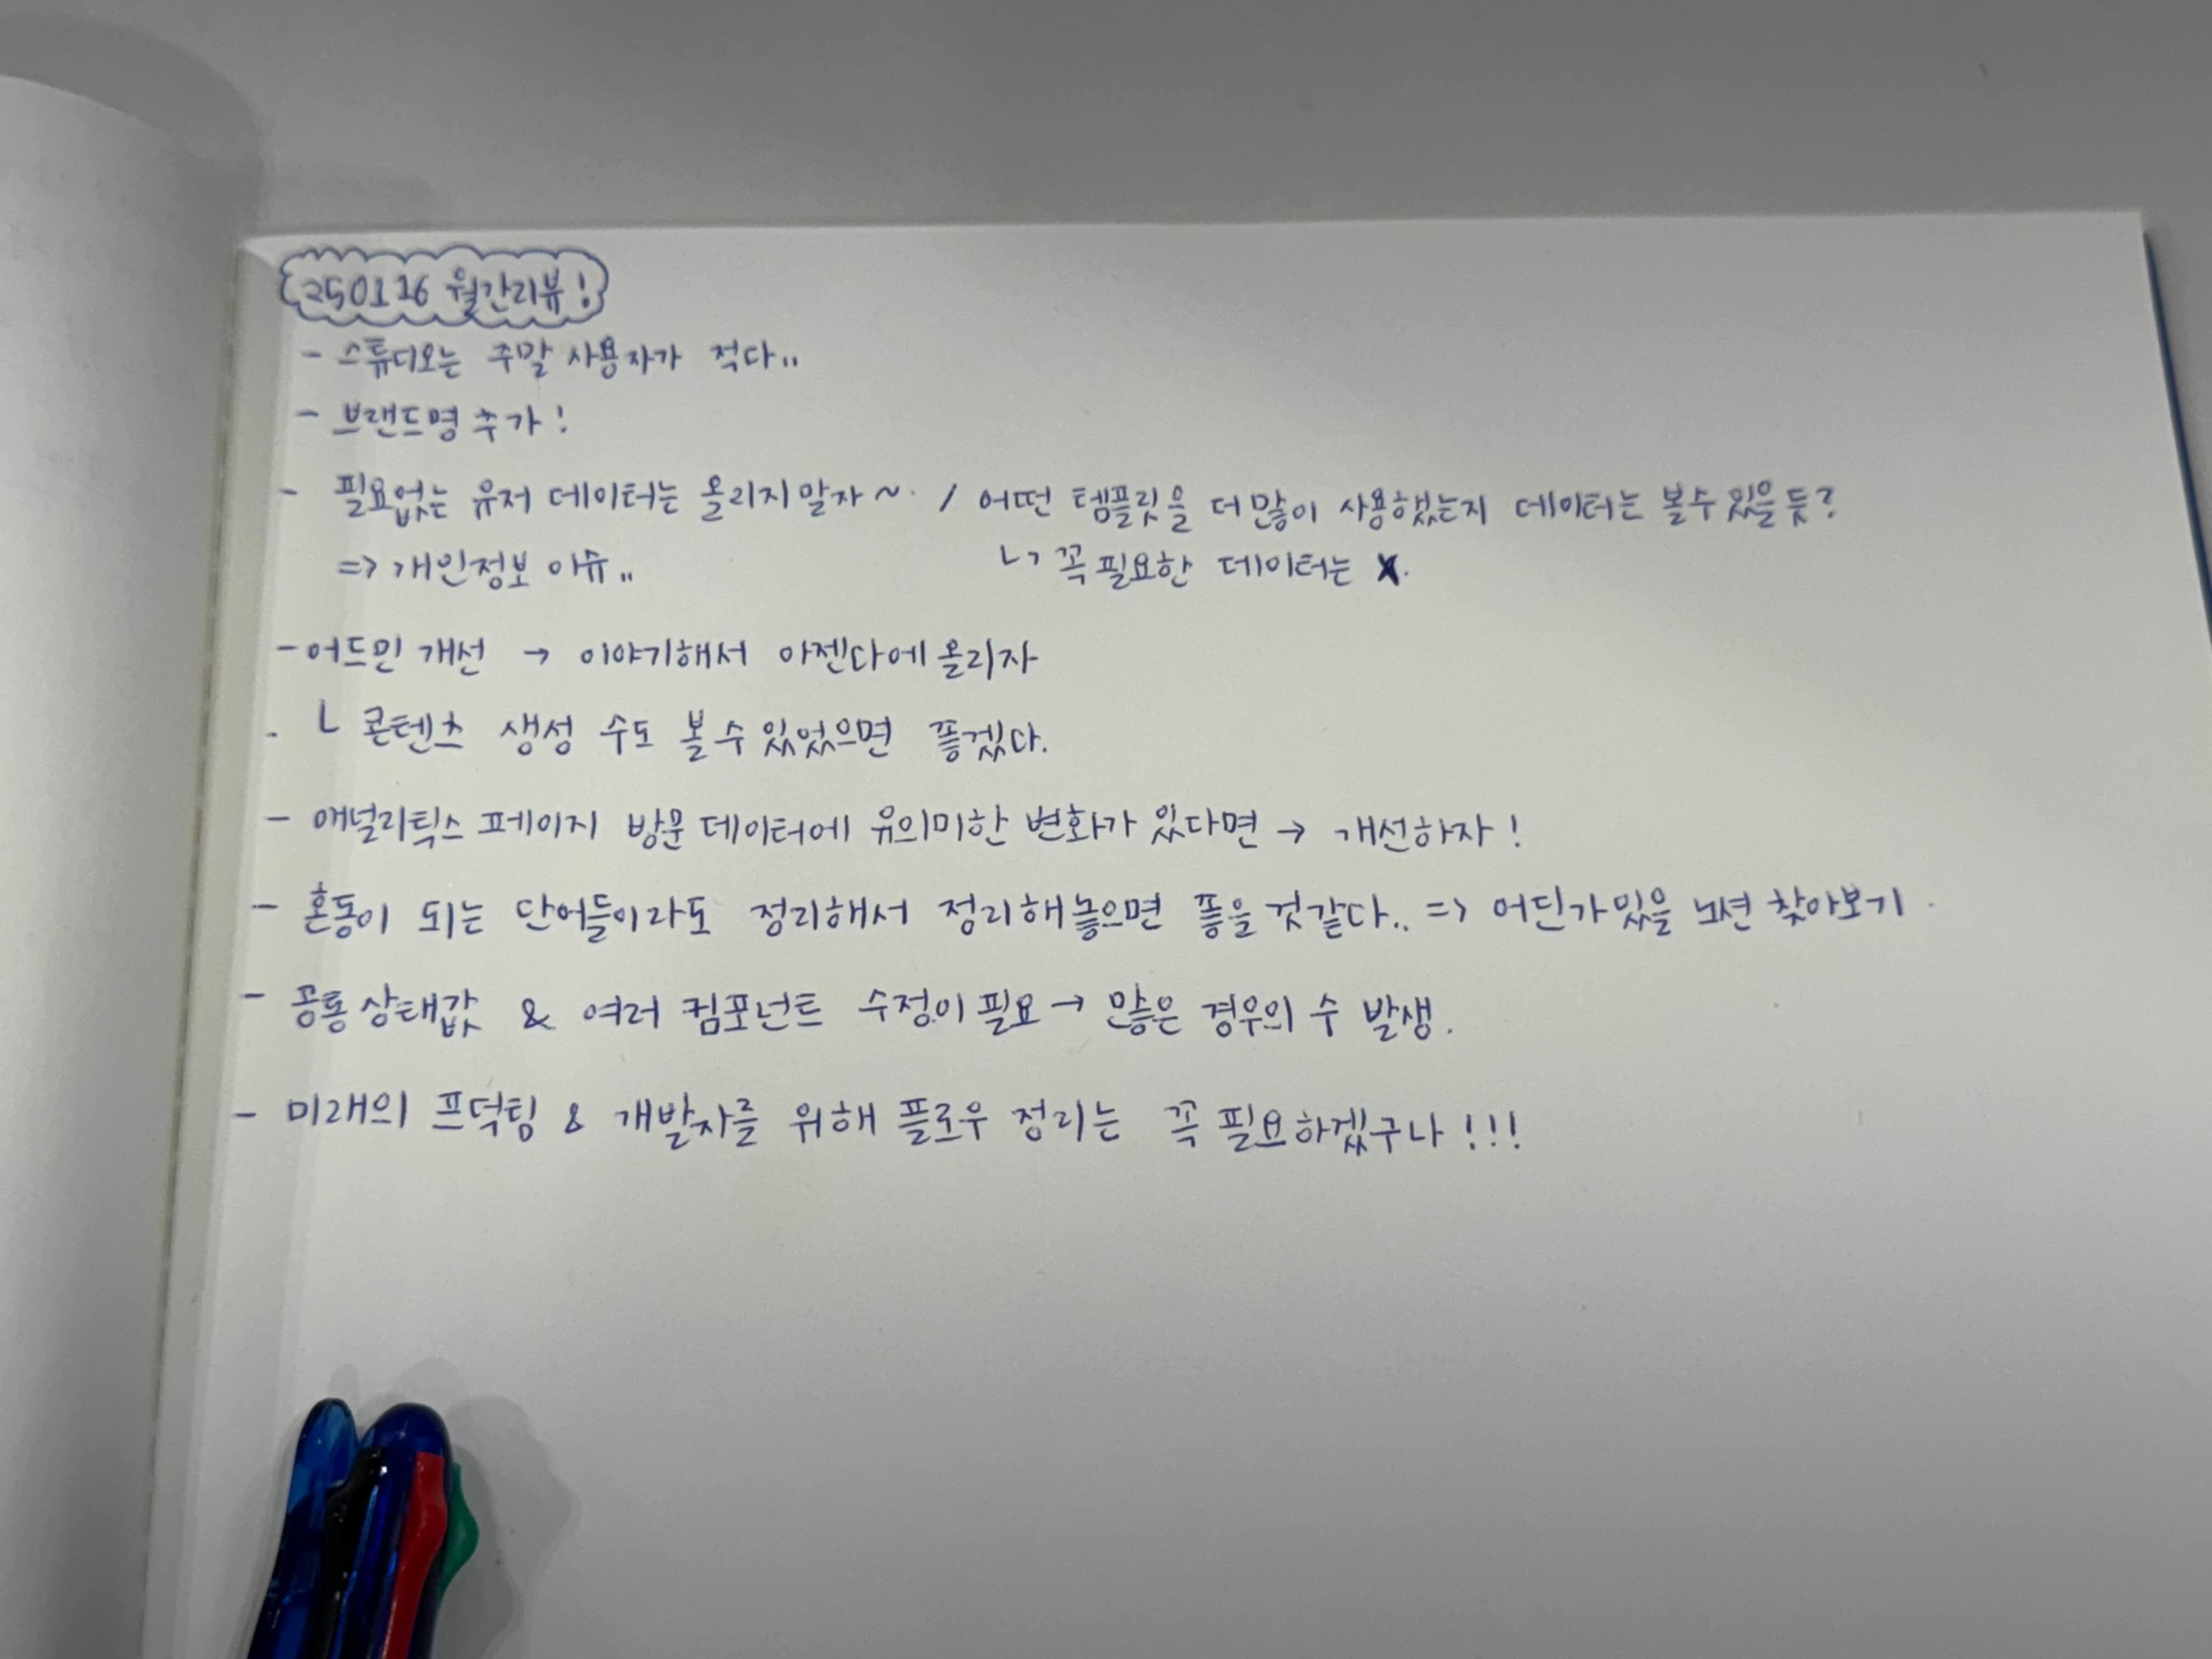 250116 월간리뷰!
- 스튜디오는 주말 사용자가 적다..
- 브랜드명 추가!
- 필요없는 유저 데이터는 올리지말자~. / 어떤 템플릿을 더 많이 사용했는지 데이터는 볼수 있을 듯?
=> 개인정보 이슈.. ↳ 꼭 필요한 데이터는 X.
- 어드민 개선 → 이야기해서 아젠다에 올리자
. ㄴ 콘텐츠 생성 수도 볼 수 있었으면 좋겠다.
- 애널리틱스 페이지 방문 데이터에 유의미한 변화가 있다면 → 개선하자!
- 혼동이 되는 단어들이라도 정리해서 정리해놓으면 좋을 것 같다.. => 어딘가 있을 노션 찾아보기.
- 공통 상태값 & 여러 컴포넌트 수정이 필요 → 많은 경우의 수 발생.
- 미래의 프덕팀 & 개발자를 위해 플로우 정리는 꼭 필요하겠구나!!!